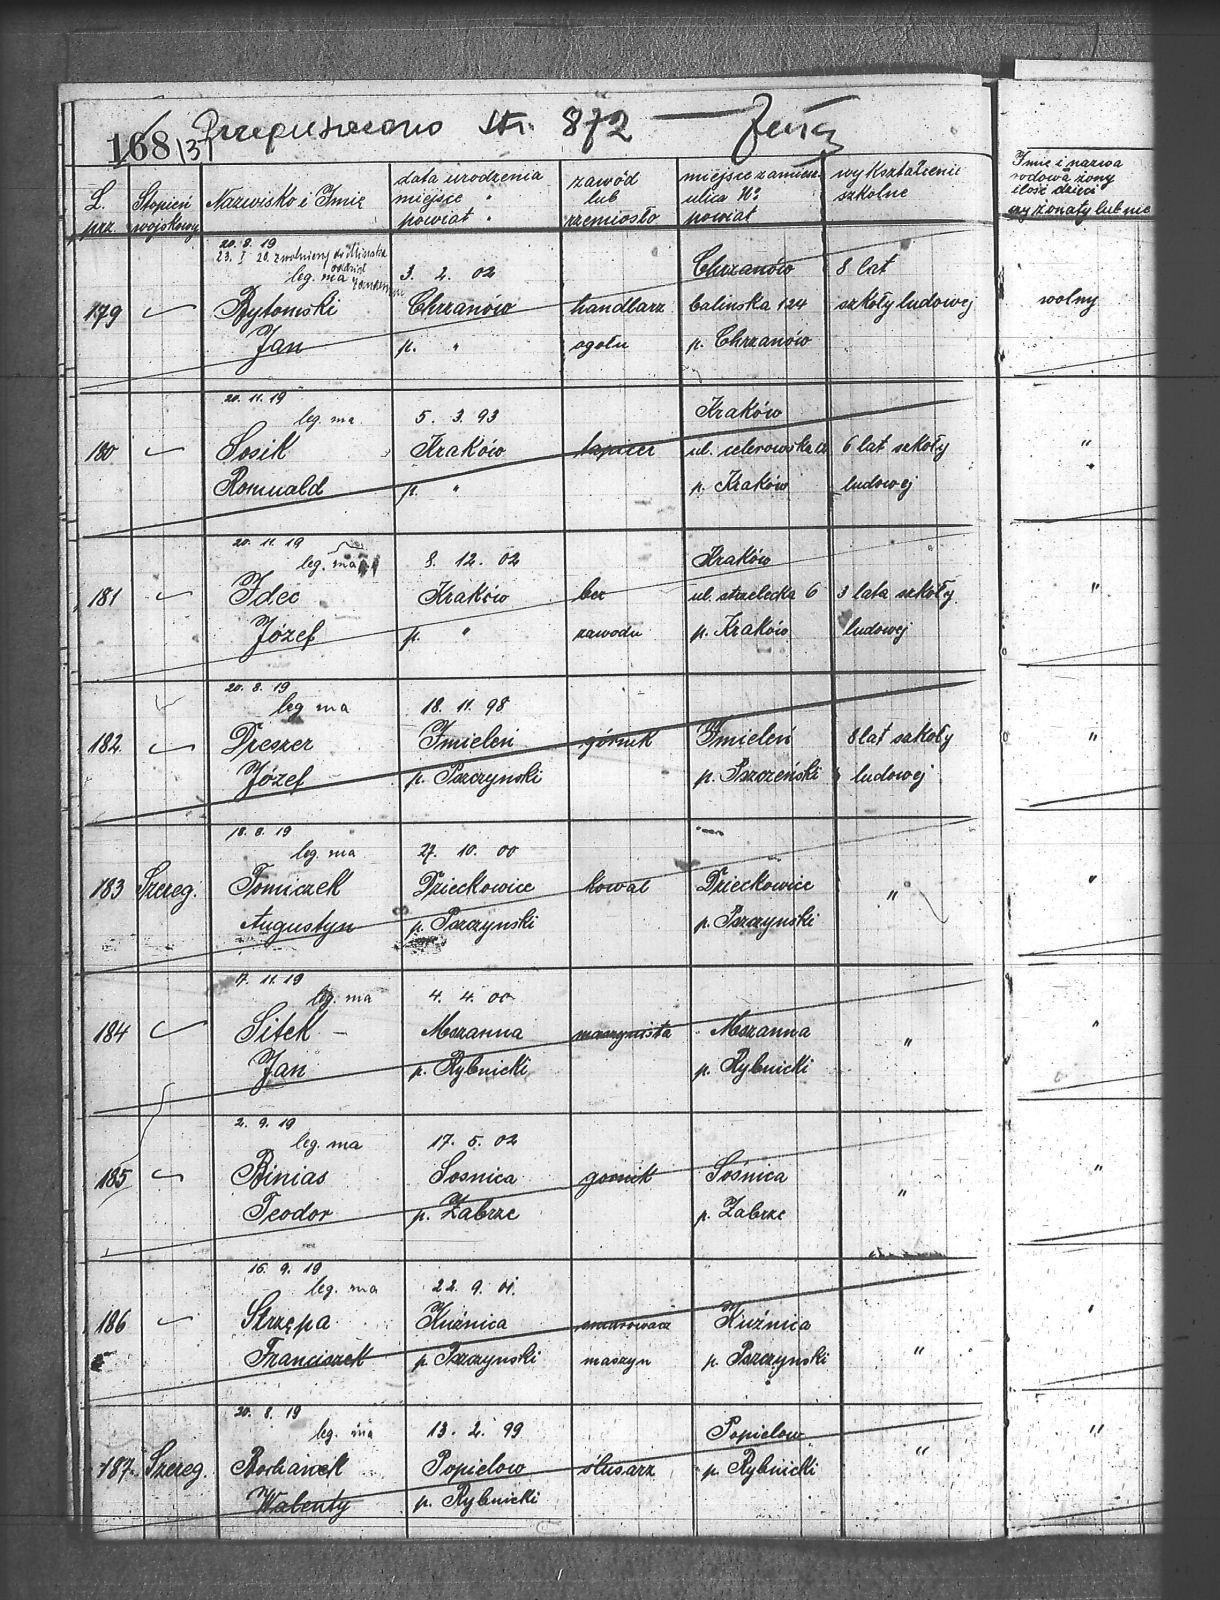 168 131 Przepuszczono str. 872 —
L. prz.
Stopień wojskowy
Nazwisko i Imię
data urodzenia
miejsce "
powiat "
zawód
lub
rzemiosło
miejsce zamiesz.
ulica No
powiat
wykształcenie
szkolne
Imię i nazwa
rodowa żony
ilość dzieci
czy żonaty lub nie
20. 8. 19
23. I 20. zwolniony do Mińska
leg. ma
3. 2. 02
Chrzanów
8 lat
179
Bytomski
Chrzanów
handlarz
balinska 124
szkoły ludowej
wolny
Jan
p. "
ogoln
p. Chrzanów
20. 11. 19
leg. ma
5. 3. 93
Kraków
180
Sosik
Kraków
tapicer
ul.
6 lat szkoły
"
Romuald
p. "
p. Kraków
ludowej
20. 11. 19
leg. ma
8. 12. 02
Kraków
181
Idec
Kraków
bez
ul. strzelecka 6
3 lata szkoły
"
Józef
p. "
zawodu
p. Kraków
ludowej
20. 8. 19
leg ma
18. 11. 98
182
Dreszer
Imieleń
górnik
Imieleń
8 lat szkoły
"
Józef
p. Pszczynski
p. Pszczeński
ludowej
18. 8. 19
leg. ma
27. 10. 00
183
Szereg.
Tomiczek
Dzieckowice
kowal
Dzieckowice
"
"
Augustyn
p. Pszczynski
p. Pszczynski
7. 11. 19
leg. ma
4. 4. 00
184
Sitek
Mszanna
maszynista
Mszanna
"
"
Jan
p. Rybnicki
p. Rybnicki
2. 9. 19
leg. ma
17. 5. 02
185
Binias
Sosnica
gornik
Sośnica
"
"
Teodor
p. Zabrze
p. Zabrze
16. 9. 19
leg. ma
22. 9. 01.
186
Strzępa
Kuźnica
smarowacz
Kuźnica
"
"
Franciszek
p. Pszczynski
maszyn
p. Pszczynski
20. 8. 19
leg. ma
13. 2. 99
Popielow
187
Szereg.
Popielow
ślusarz
p. Rybnicki
"
"
Walenty
p. Rybnicki